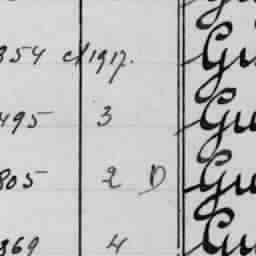 354 cl 1917. Gu
495 3 Gu
805 2 D Gu
369 4 Gu